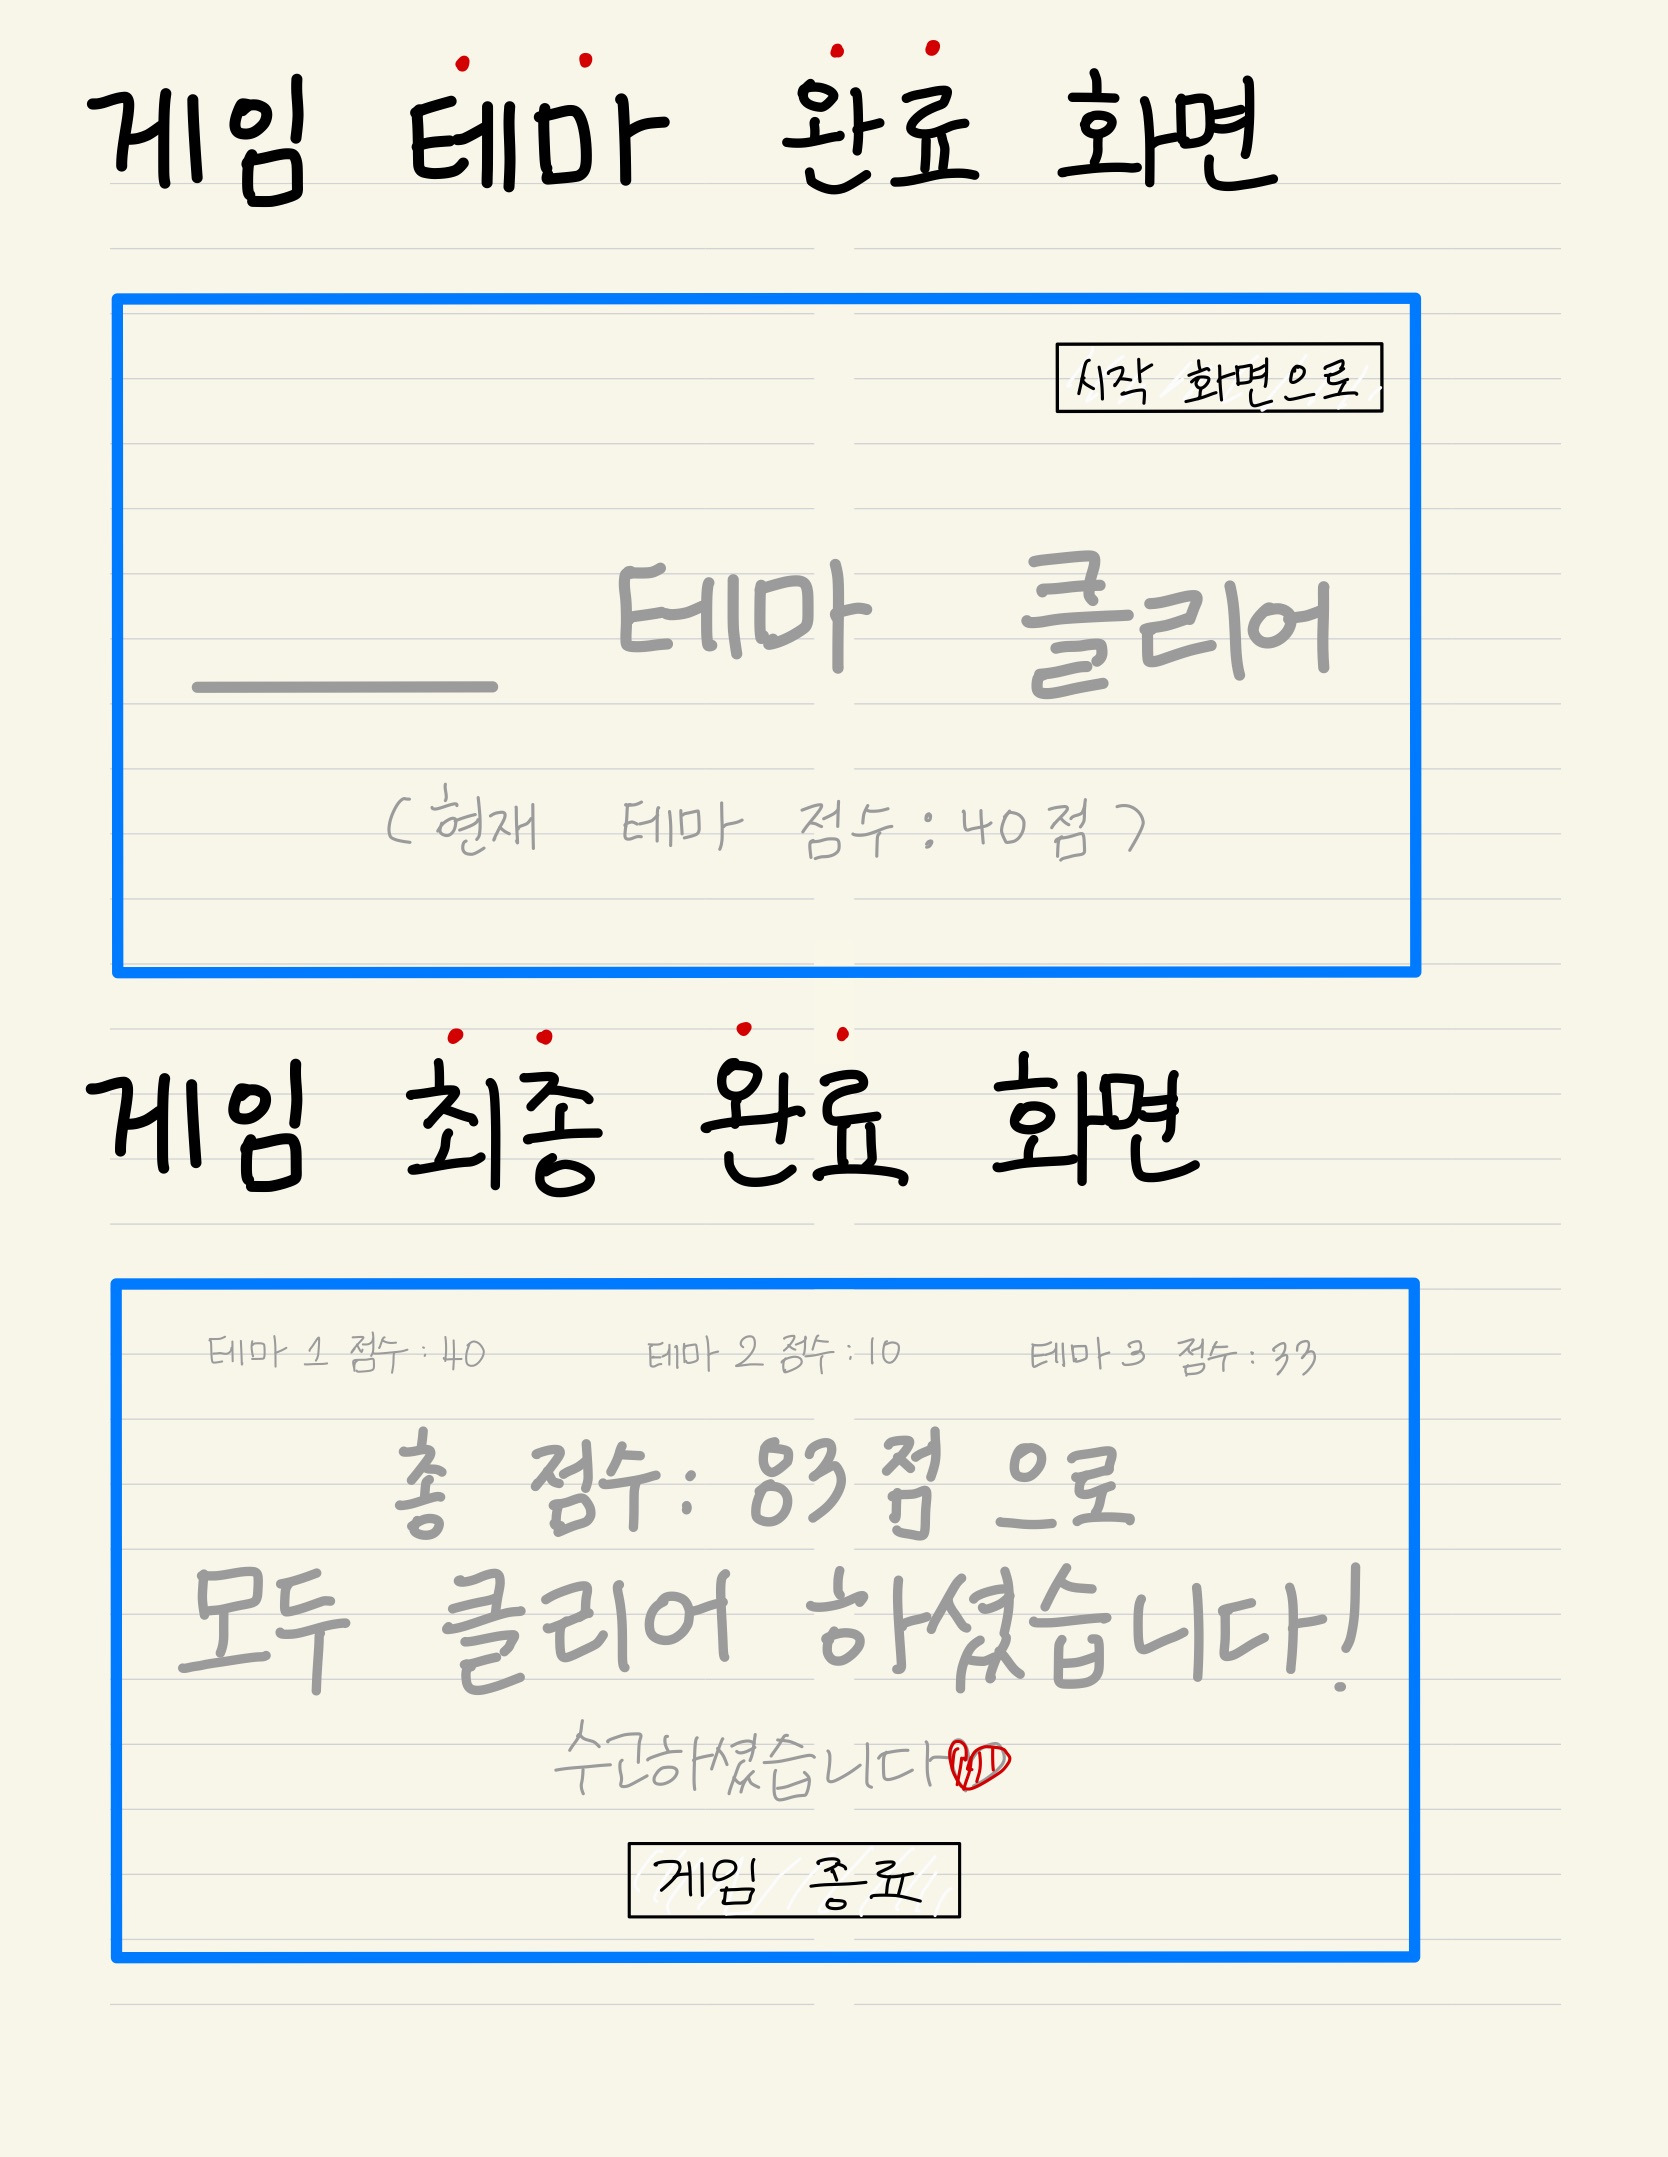 게임 테마 완료 화면
시작 화면으로
테마 클리어
(현재 테마 점수 : 40점)
게임 최종 완료 화면
테마 1 점수 : 40 테마 2 점수 : 10 테마 3 점수 : 33
총 점수 : 83점 으로
모두 클리어 하셨습니다!
수고하셨습니다
게임 종료